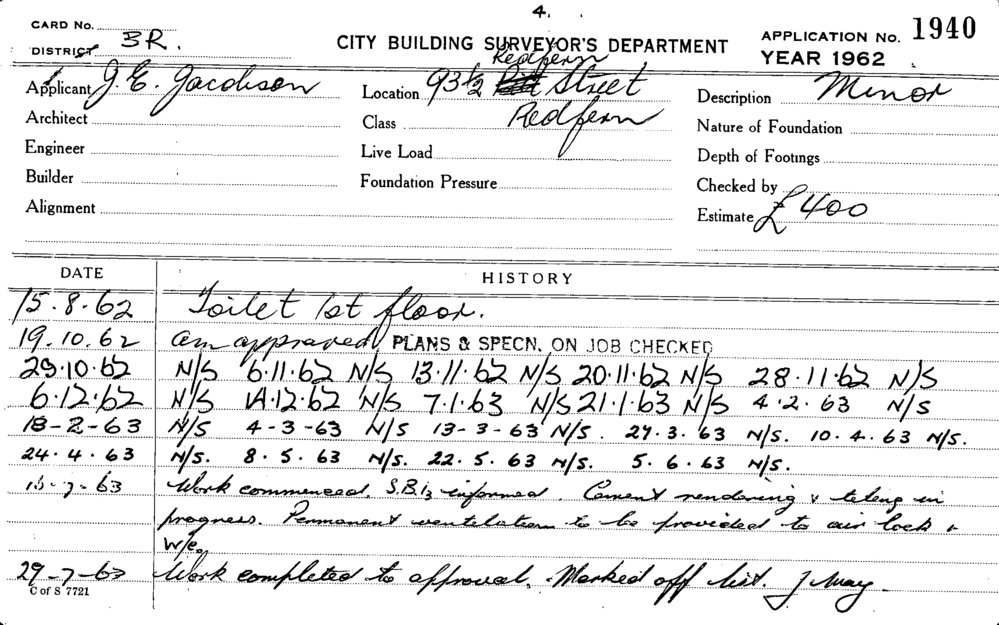 4.
CARD No.
DISTRICT BR.
CITY BUILDING SURVEYOR'S DEPARTMENT
APPLICATION No. 1940
YEAR 1962
Applicant J. E. Jacobson
Architect
Engineer
Builder
Alignment
Redfern
Location 93½ Street
Class Redfern
Live Load
Foundation Pressure
Description Minor
Nature of Foundation
Depth of Footings
Checked by
Estimate £400
DATE HISTORY
15.8.62 Toilet 1st floor.
19.10.62 am approved PLANS & SPECN. ON JOB CHECKED
29.10.62 N/S 6.11.62 N/S 13.11.62 N/S 20.11.62 N/S 28.11.62 N/S
6.12.62 N/S 14.12.62 N/S 7.1.63 N/S 21.1.63 N/S 4.2.63 N/S
18-2-63 N/S 4-3-63 N/S 13-3-63 N/S. 29.3.63 N/S. 10.4.63 N/S.
24.4.63 N/S. 8.5.63 N/S. 22.5.63 N/S. 5.6.63 N/S.
15-7-63 Work commenced. informed. Cement rendering & tileing in
progress. Permanent ventelation to be provided to air lock &
W/c.
29-7-63 Work completed to approval. Marked off list. J May.
C of S 7721